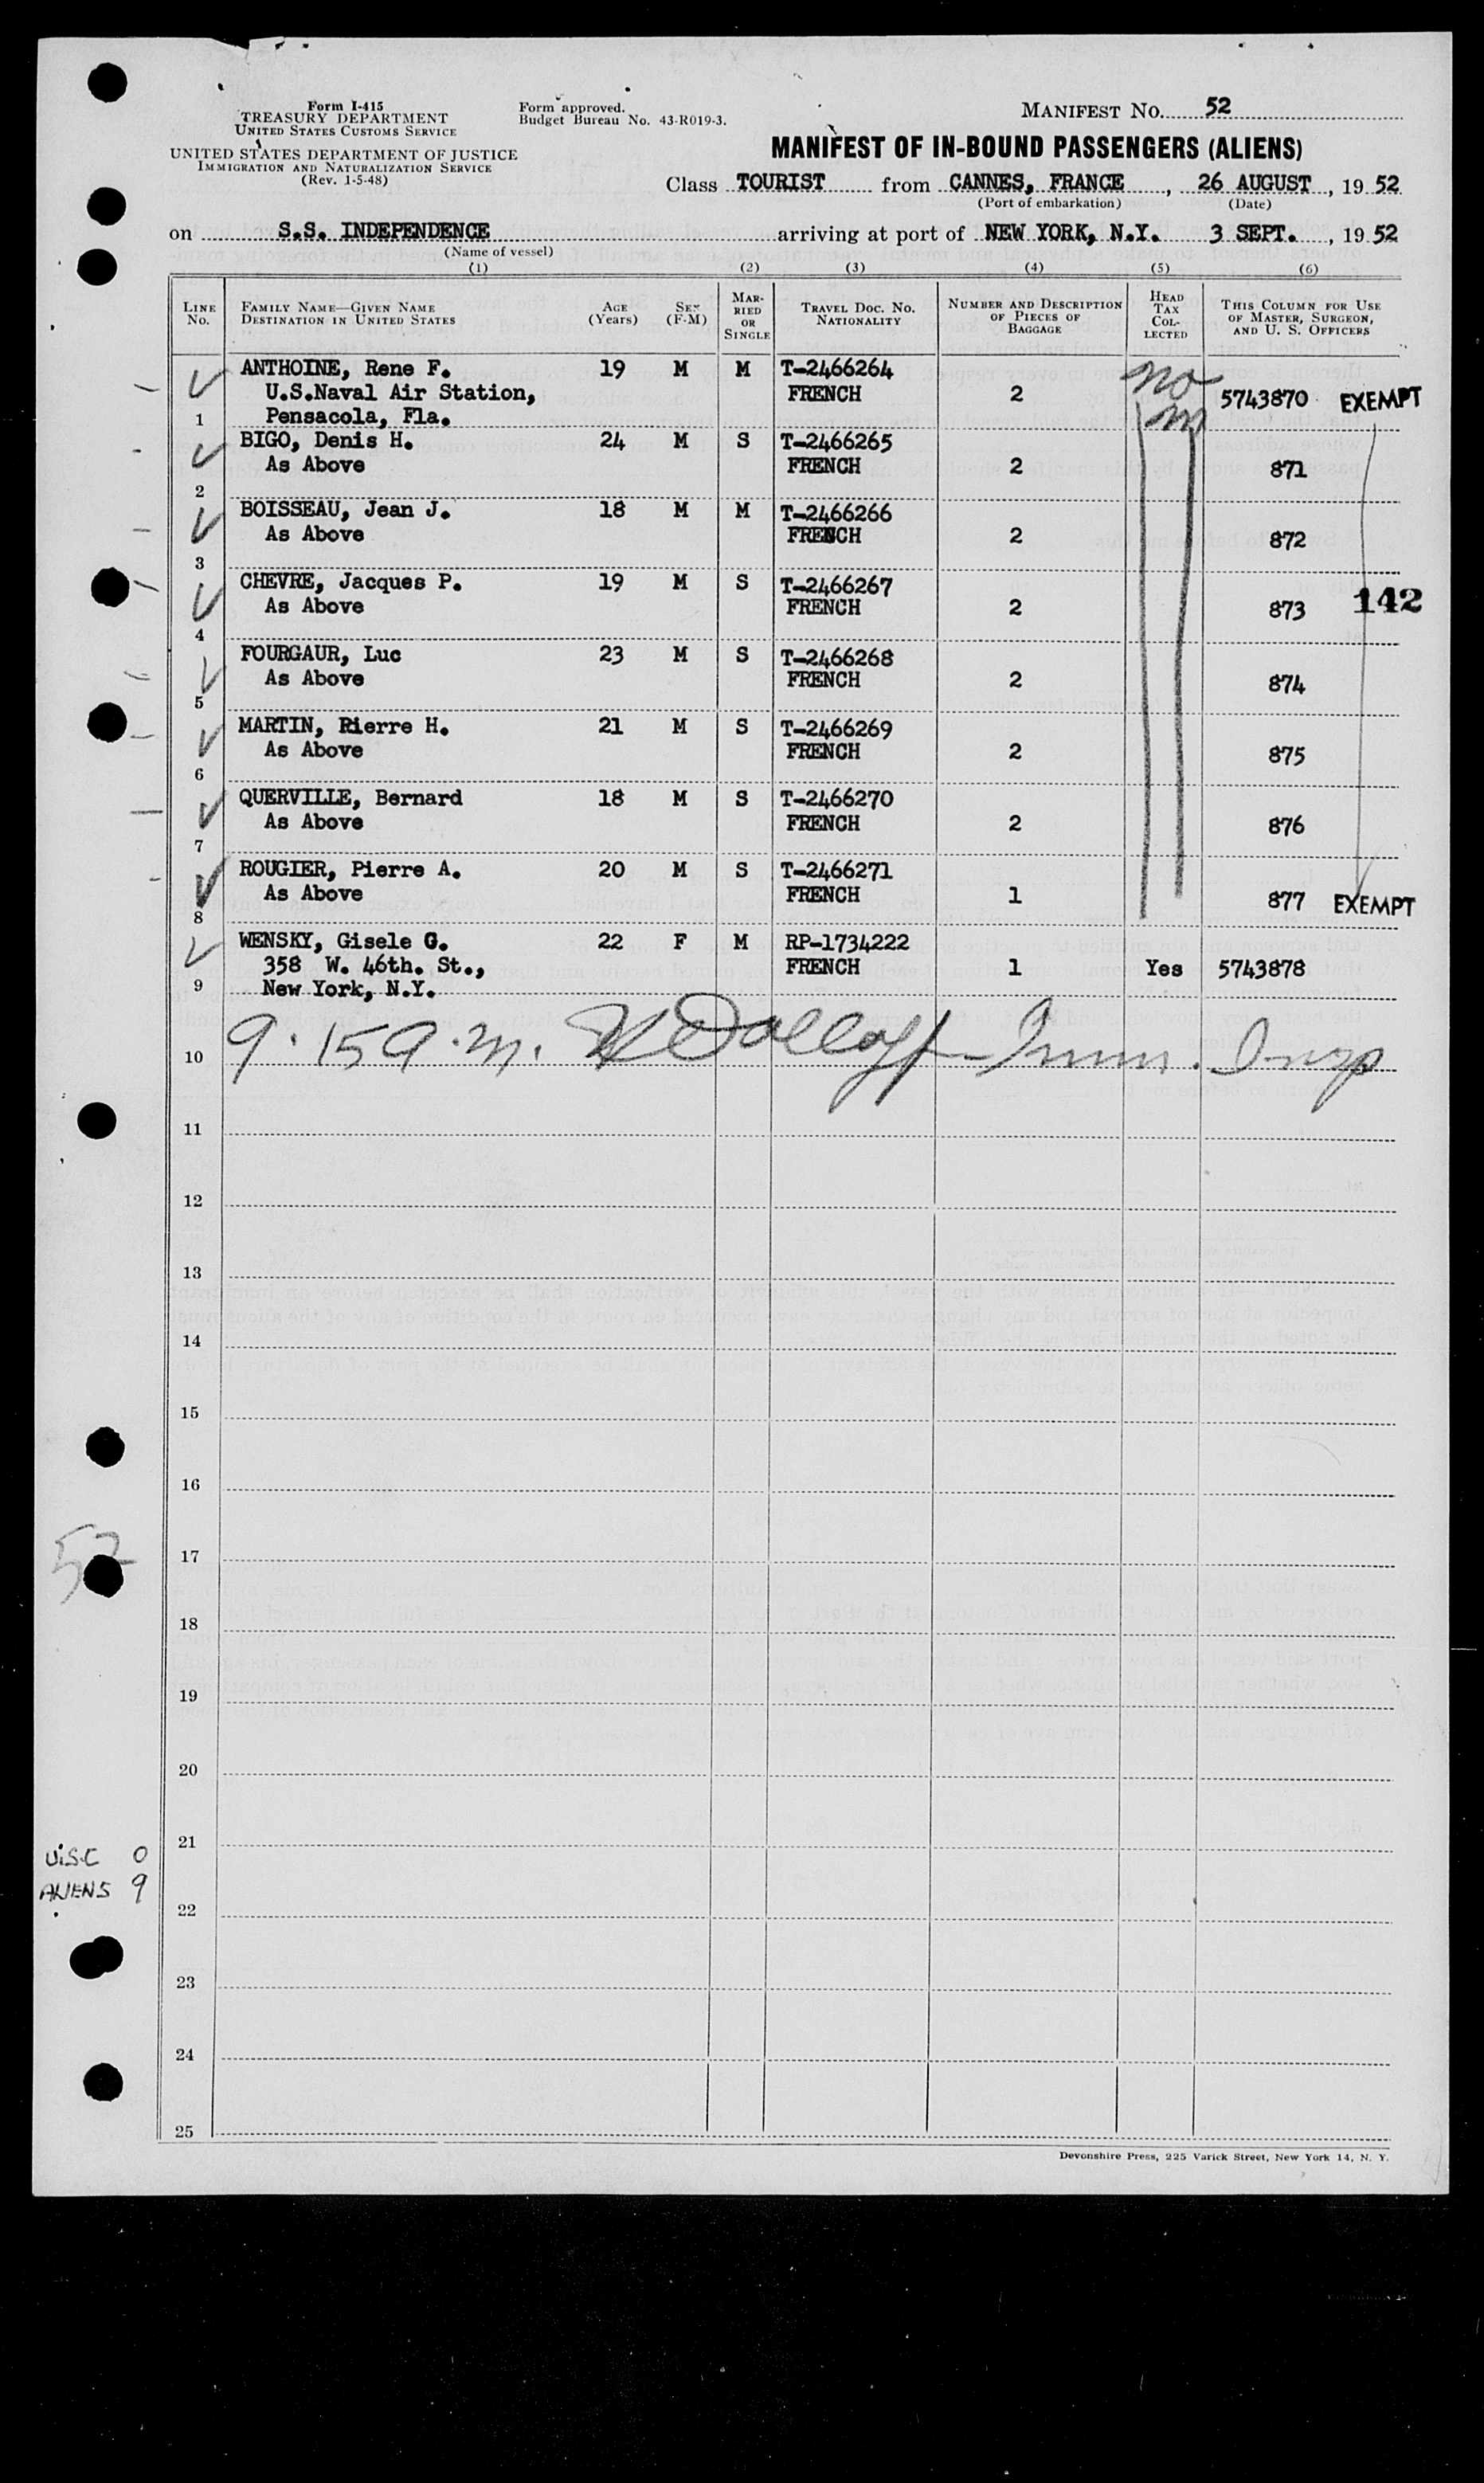 Form I-415
TREASURY DEPARTMENT
UNITED STATES CUSTOMS SERVICE
UNITED STATES DEPARTMENT OF JUSTICE
IMMIGRATION AND NATURALIZATION SERVICE
(Rev. 1-5-48)
Form approved.
Budget Bureau No. 43-R019-3.
MANIFEST No. 52
MANIFEST OF IN-BOUND PASSENGERS (ALIENS)
Class TOURIST from CANNES, FRANCE, 26 AUGUST, 19 52
(Port of embarkation) (Date)
on S.S. INDEPENDENCE arriving at port of NEW YORK, N.Y. 3 SEPT., 19 52
(Name of vessel)
(1) (2) (3) (4) (5) (6)
LINE No. FAMILY NAME—GIVEN NAME DESTINATION IN UNITED STATES AGE (Years) SEX (F-M) MARRIED OR SINGLE TRAVEL DOC. No. NATIONALITY NUMBER AND DESCRIPTION OF PIECES OF BAGGAGE HEAD TAX COLLECTED THIS COLUMN FOR USE OF MASTER, SURGEON, AND U. S. OFFICERS
ANTHOINE, Rene F. 19 M M T-2466264 no
U.S.Naval Air Station, FRENCH 2 5743870 EXEMPT
1 Pensacola, Fla.
BIGO, Denis H. 24 M S T-2466265
As Above FRENCH 2 871
2
BOISSEAU, Jean J. 18 M M T-2466266
As Above FRENCH 2 872
3
CHEVRE, Jacques P. 19 M S T-2466267
As Above FRENCH 2 873 142
4
FOURGAUR, Luc 23 M S T-2466268
As Above FRENCH 2 874
5
MARTIN, Pierre H. 21 M S T-2466269
As Above FRENCH 2 875
6
QUERVILLE, Bernard 18 M S T-2466270
As Above FRENCH 2 876
7
ROUGIER, Pierre A. 20 M S T-2466271
As Above FRENCH 1 877 EXEMPT
8
WENSKY, Gisele G. 22 F M RP-1734222
358 W. 46th. St., FRENCH 1 Yes 5743878
9 New York, N.Y.
10 9.15 a.m. Imm. Insp
11
12
13
14
15
16
52
17
18
19
20
21
U.S.C 0
ALIENS 9
22
23
24
25
Devonshire Press, 225 Varick Street, New York 14, N. Y.